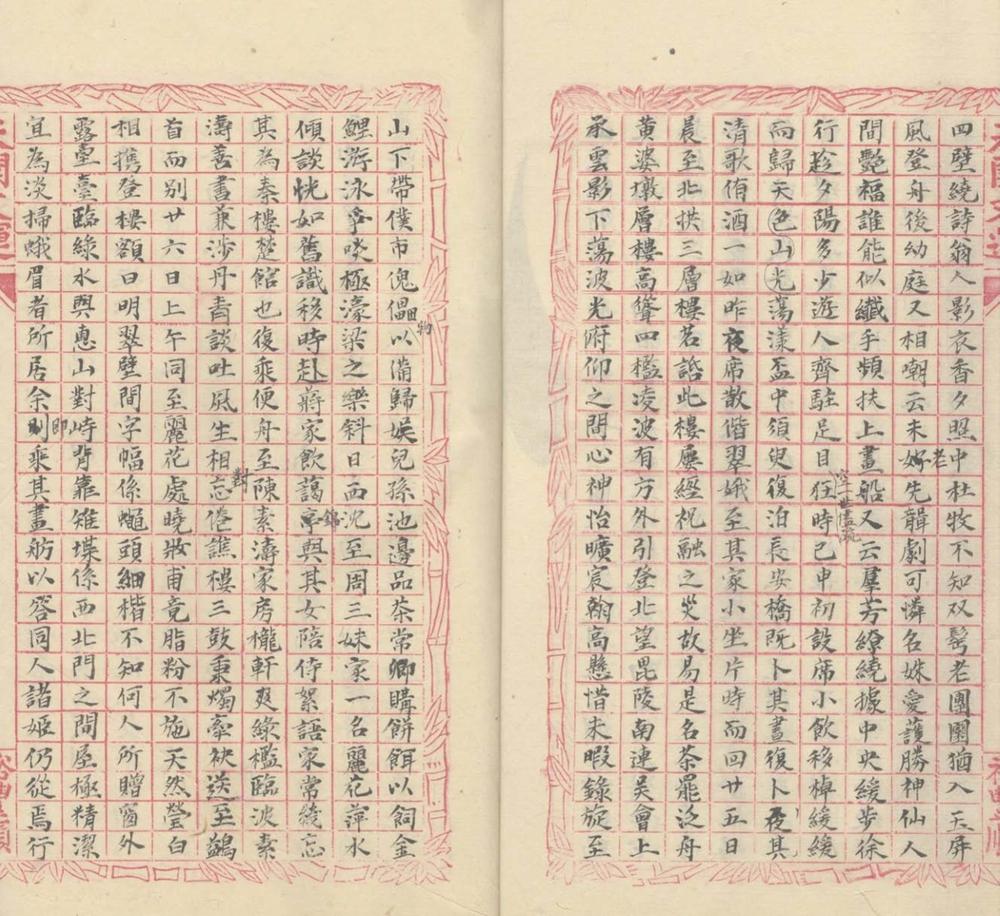 四壁繞詩翁人影衣香夕照中杜牧不知双鬂老團圞猶入玉屏
風登舟後幼庭又相嘲云未婦老先龍劇可憐名姝愛護勝神仙人
間艷福誰能似纖手頻扶上畫船又云羣芳繚繞據中央緩步徐
行趁夕陽多少遊人齊駐足目狂時已申初設席小飲移棹緩緩
而歸天色山光蕩漾盃中須臾復泊長安橋既卜其晝復卜夜其
清歌侑酒一如昨夜席散偕翠娥至其家小坐片時而回廿五日
晨至北拱三層樓茗話此樓屢經祝融之災故易是名茶罷泛舟
黃婆墩層樓高聳四檻凌波有方外引登北望毘陵南連吳會上
承雲影下蕩波光俯仰之間心神怡曠宸翰高懸惜未暇錄旋至
山下帶僕市傀儡以滿歸娛兒孫池邊品茶常卿購餅餌以飼金
鯉游泳爭啖極濠梁之樂斜日西沈至周三妹家一名麗花萍水
傾談恍如舊識移時赴蔣家飲藹亭與其女陪侍絮語家常縗忘
其為秦樓楚館也復乘便舟至陳素濤家房櫳軒爽綠檻臨波素
濤善書兼涉丹青談吐風生相忘倦譙樓三鼓秉燭牽袂送至鷁
首而別廿六日上午同至麗花處曉妝甫竟脂粉不施天然瑩白
相攜登樓額曰明翠壁間字幅係蠅頭細楷不知何人所贈窗外
露臺臺臨綠水與惠山對峙背靠雉堞係西北門之間屋極精潔
宜為淡掃蛾眉者所居余則乘其畫舫以答同人諸姬仍從焉行